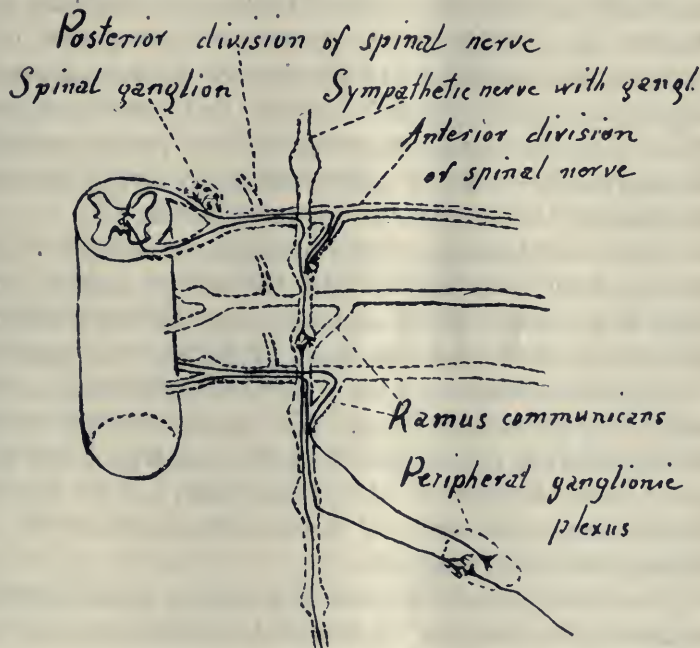 Posterior division of spinal nerve
Spinal ganglion
Sympathetic nerve with gangl.
Anterior division
of spinal nerve
Ramus communicans
Peripheral ganglionic
plexus